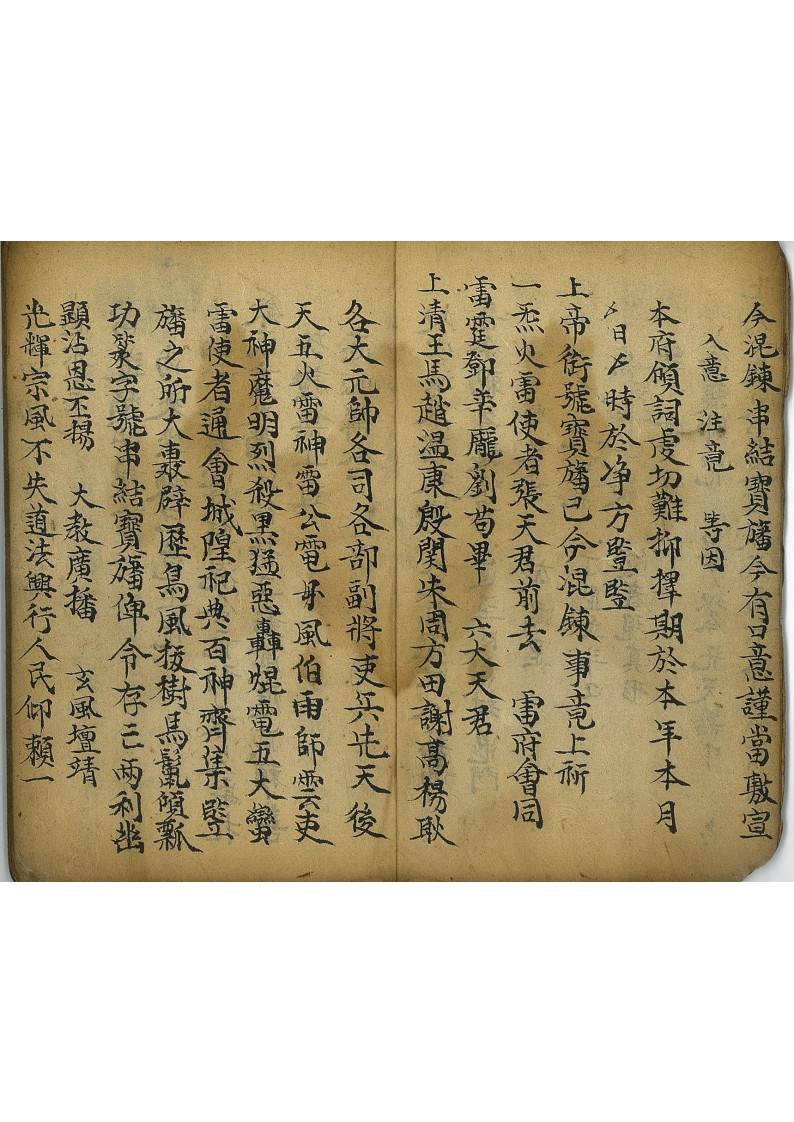 今混鍊串結寶旛今有口意謹當敷宣
入意 注意 等因
本府傾詞虔切難抑擇期於本年本月
日 時於净方竪竪
上帝銜號寶旛已今混鍊事竟上祈
一炁火雷使者張天君前去 雷府會同
雷霆鄧辛龐劉苟畢 六大天君
上清王馬趙温康殷関朱周方田謝高楊耿
各大元帥各司各部副將吏兵先天後
天五火雷神雷公電母風伯雨師雲吏
大神魔明烈殺黑猛惡轟焜電五大蠻
雷使者通會城隍祀典百神齊集竪
旛之所大轟辟歷烏風拔樹馬鬣傾瓢
功 字號串結寶旛俾令存亡兩利幽
顯沾恩丕揚 大教廣播 玄風壇靖
光輝宗風不失道法興行人民仰賴一